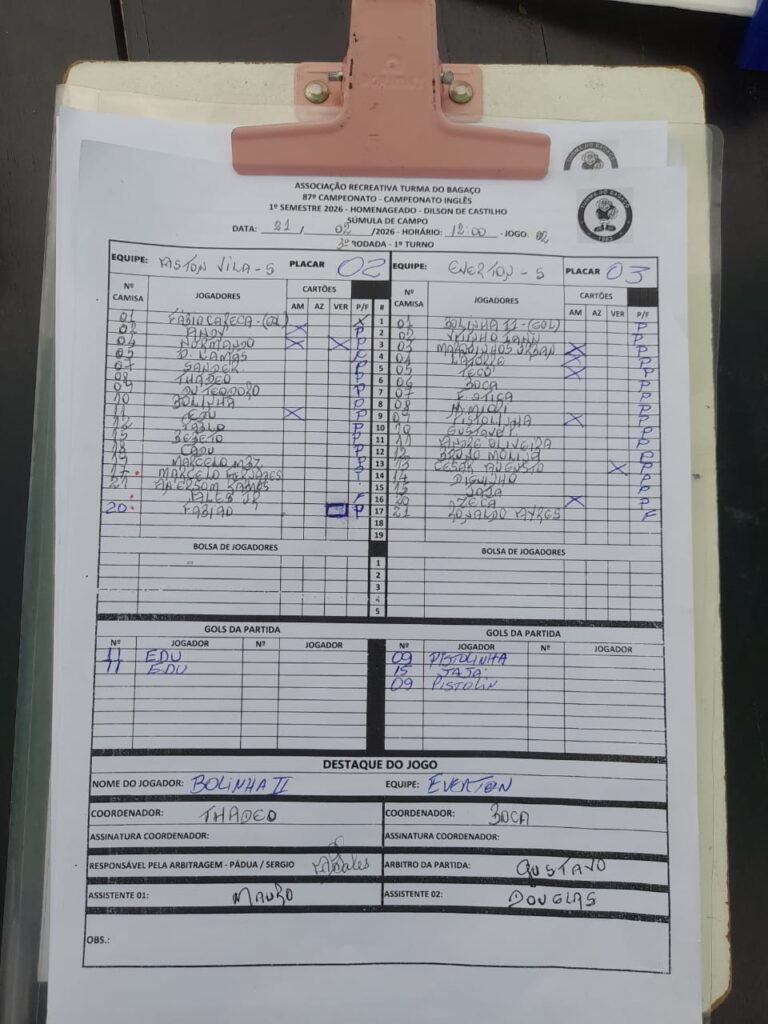 ASSOCIAÇÃO RECREATIVA TURMA DO BAGAÇO
87º CAMPEONATO - CAMPEONATO INGLÊS
1º SEMESTRE 2026 - HOMENAGEADO - DILSON DE CASTILHO
SÚMULA DE CAMPO
DATA: 21 / 02 /2026 - HORÁRIO: 12:00 - JOGO: 02
3ª RODADA - 1º TURNO
EQUIPE: ASTON VILA - S PLACAR 02 EQUIPE: EVERTON - S PLACAR 03
Nº CAMISA JOGADORES CARTÕES AM AZ VER P/F # Nº CAMISA JOGADORES CARTÕES AM AZ VER P/F
01 FÁBIO CARECA - (GOL) X 1 01 BOLINHA II - (GOL) P
02 ANDY X P 2 02 IANN P
04 NORMANDO X X P 3 03 MARQUINHOS X P
05 D. LAMAS 4 04 X P
07 SANDER P 5 05 TECO X P
08 THADEO P 6 06 BOCA P
09 DU TEODORO P 7 07 P
10 BOLINHA 8 08 P
11 EDU X P 9 09 PISTOLINHA X P
12 PABLO P 10 10 GUSTAVO P
BEBETO P 11 11 ANDRÉ OLIVEIRA P
18 CADU P 12 12 BRUNO MOLINA
19 MARCELO P 13 13 CESAR AUGUSTO X P
17 MARCELO P 14 14 DIGUINHO P
21 ANDERSOM RAMOS 15 15 JAJA P
TALES JR F 16 20 ZECA X P
20 FABIÃO P 17 21 RONALDO F
18
19
BOLSA DE JOGADORES BOLSA DE JOGADORES
1
2
3
4
5
GOLS DA PARTIDA GOLS DA PARTIDA
Nº JOGADOR Nº JOGADOR Nº JOGADOR Nº JOGADOR
11 EDU 09 PISTOLINHA
11 EDU 15 JAJA
09 PISTOLIN
DESTAQUE DO JOGO
NOME DO JOGADOR: BOLINHA II EQUIPE: EVERTON
COORDENADOR: THADEO COORDENADOR: BOCA
ASSINATURA COORDENADOR: ASSINATURA COORDENADOR:
RESPONSÁVEL PELA ARBITRAGEM - PÁDUA / SERGIO ARBITRO DA PARTIDA: GUSTAVO
ASSISTENTE 01: MAURO ASSISTENTE 02: DOUGLAS
OBS.: